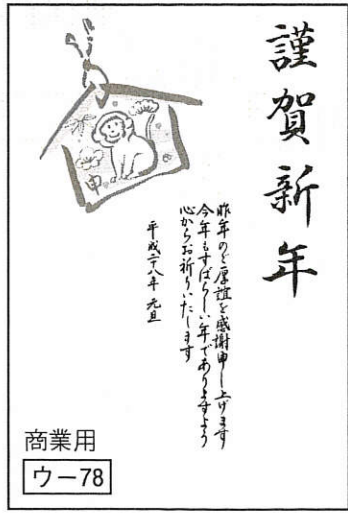 謹賀新年
昨年のご厚誼を感謝申し上げます
今年もすばらしい年でありますよう
心からお祈りいたします
平成二八年 元旦
申
商業用
ウー78